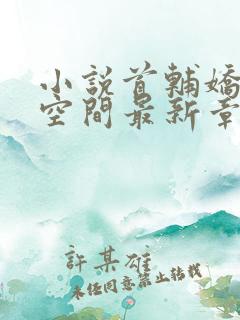 小說首輔嬌
空間最新章
許某雄
未经同意禁止转载